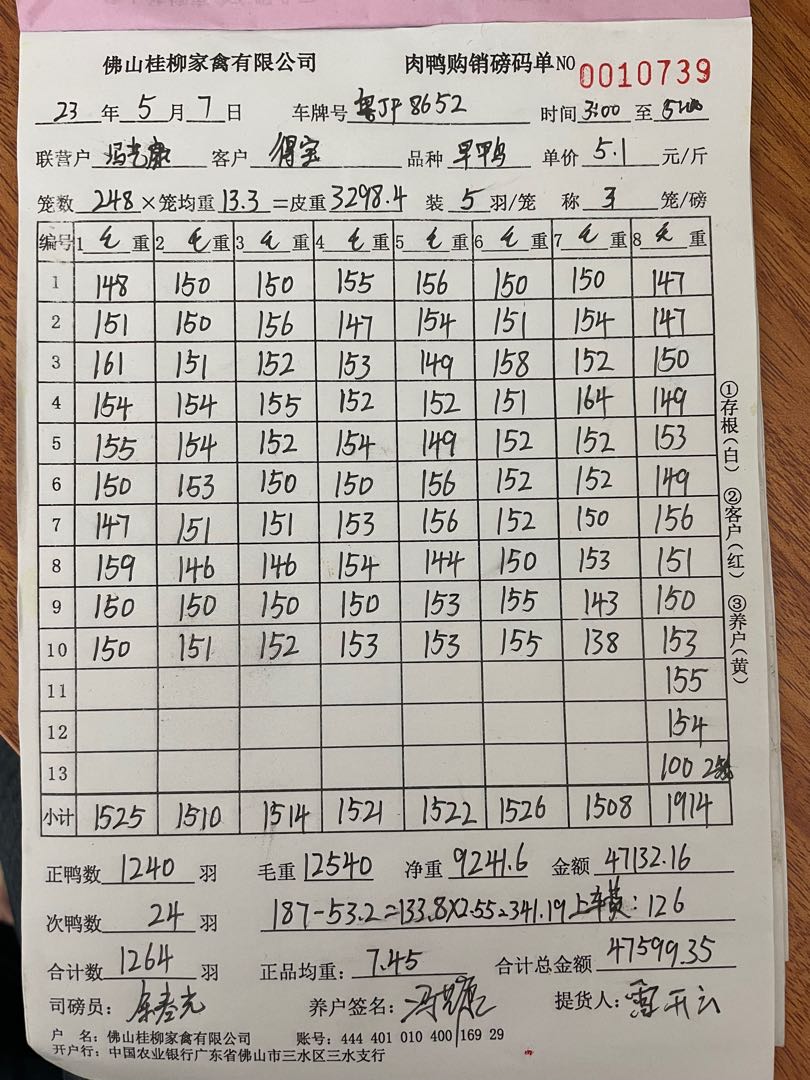 佛山桂柳家禽有限公司 肉鸭购销磅码单NO 0010739
23 年 5 月 7 日 车牌号 粤JF8652 时间 3:00 至
联营户 冯光康 客户 得宝 品种 旱鸭 单价 5.1 元/斤
笼数 248 ×笼均重 13.3 =皮重 3298.4 装 5 羽/笼 称 3 笼/磅
编号 1 毛 重 2 毛 重 3 毛 重 4 毛 重 5 毛 重 6 毛 重 7 毛 重 8 毛 重
1 148 150 150 155 156 150 150 147
2 151 150 156 147 154 151 154 147
3 161 151 152 153 149 158 152 150
4 154 154 155 152 152 151 164 149
5 155 154 152 154 149 152 152 153
6 150 153 150 150 156 152 152 149
7 147 151 151 153 156 152 150 156
8 159 146 146 154 144 150 153 151
9 150 150 150 150 153 155 143 150
10 150 151 152 153 153 155 138 153
11 155
12 154
13 100 2笼
小计 1525 1510 1514 1521 1522 1526 1508 1914
正鸭数 1240 羽 毛重 12540 净重 9241.6 金额 47132.16
次鸭数 24 羽 187-53.2=133.8×2.55=341.19 上车费:126
合计数 1264 羽 正品均重: 7.45 合计总金额 47599.35
司磅员: 养户签名: 提货人:
户 名: 佛山桂柳家禽有限公司 账号: 444 401 010 400 169 29
开户行: 中国农业银行广东省佛山市三水区三水支行
①存根(白) ②客户(红) ③养户(黄)